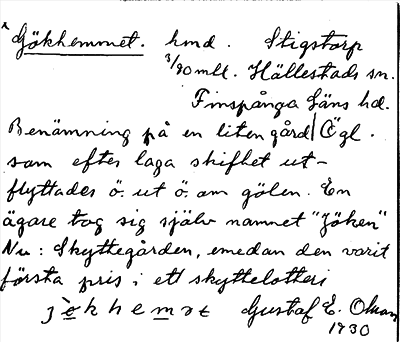 Gökhemmet. hmd. Stigstorp
3/90 mlt. Hällestads sn.
Finspånga läns hd.
Benämning på en liten gård Ögl.
som efter laga skiftet ut-
flyttades ö. ut ö. om gölen. En
ägare tog sig själv namnet "Jöken"
Nu: Skyttegården, emedan den varit
första pris i ett skyttelotteri
Gustaf E. Olsson
1930